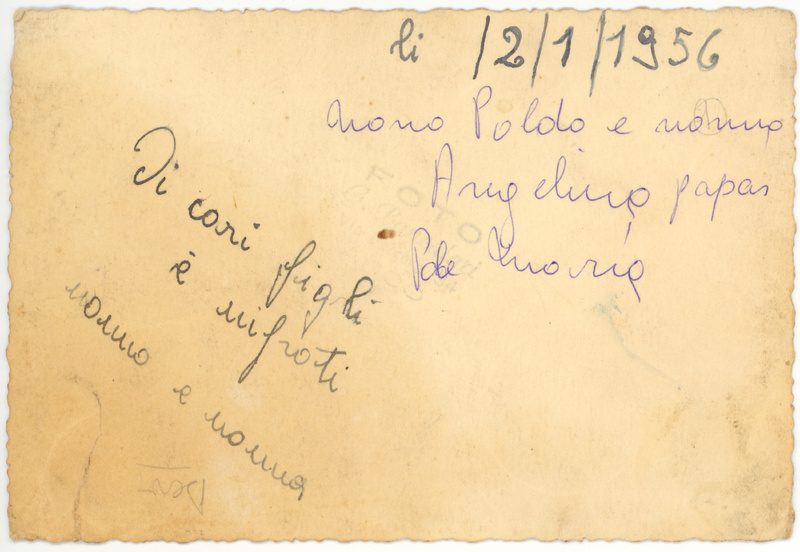 li 12/1/1956
nono Poldo e nonna
Angelina papas
Pole Maria
Di cari figli
e nifroti
nonno e nonna
FOTO